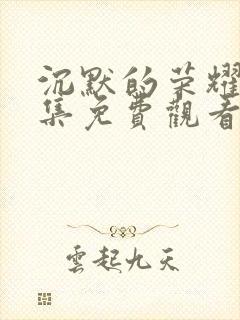 沉默的荣耀
集免費觀看
雲起九天